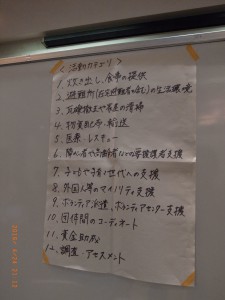 <活動カテゴリ>
1. 炊き出し、食事の提供
2. 避難所(在宅避難者も含む)の生活環境
3. 瓦礫撤去や家屋の清掃
4. 物資配布・輸送
5. 医療・レスキュー
6. 障がい者や高齢者などの要援護者支援
7. 子どもや子育て世代への支援
8. 外国人等のマイノリティ支援
9. ボランティア派遣、ボランティアセンター支援
10. 団体間のコーディネート
11. 資金助成
12. 調査・アセスメント